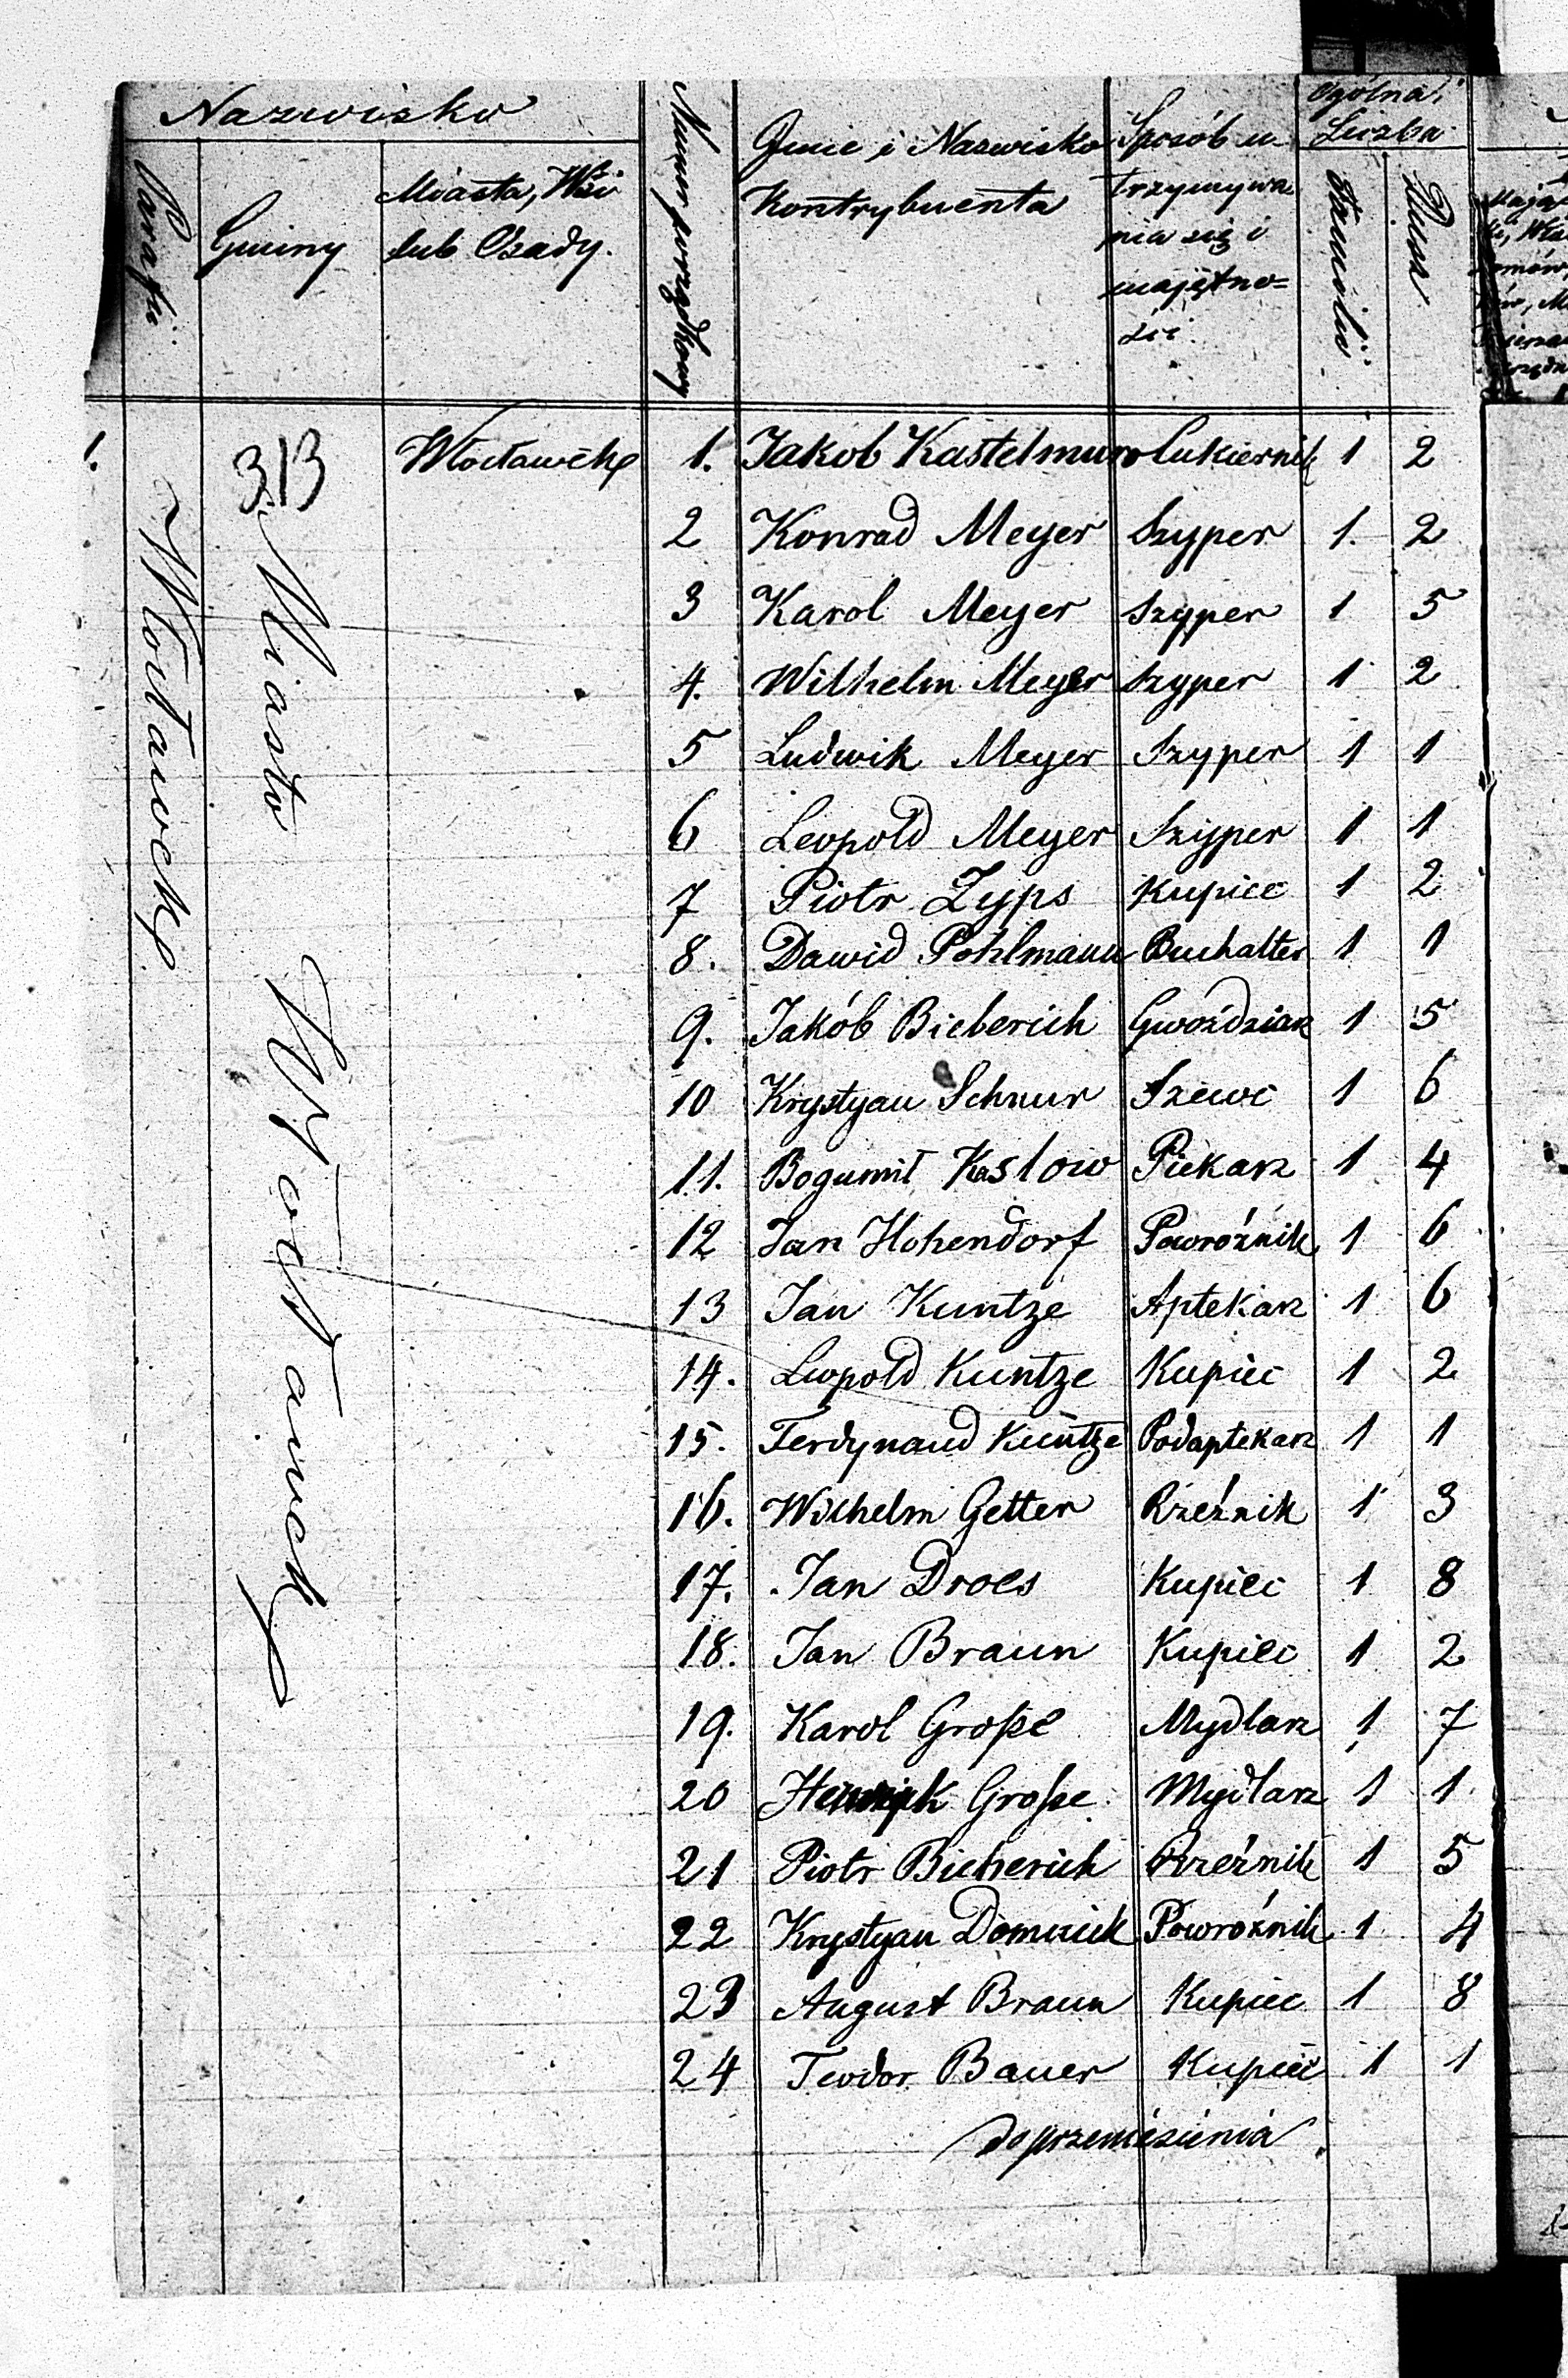 Nazwisko
Parafii
Gminy
Miasta, Wsi
lub Osady.
Numer porządkowy
Jmie i Nazwisko
Kontrybuenta
Sposób u
trzymywa
nia się i
majętno=
ści.
Ogólna
Liczba
Familii
Dusz
1. Włocławek
313 Miasto Włocławek
Włocławek 1. Jakob Kastelmur Cukiernik 1 2
2 Konrad Meyer Szyper 1. 2
3 Karol Meyer Szyper 1 5
4. Wilhelm Meyer Szyper 1 2
5 Ludwik Meyer Szyper 1 1
6 Leopold Meyer Szyper 1 1
7 Piotr Zyps Kupiec 1 2
8. Dawid Pohlmann Buchalter 1 1
9. Jakób Bieberich Gwoździarz 1 5
10 Krystyan Schnur Szewc 1 6
11. Bogumił Kaslow Piekarz 1 4
12 Jan Hohendorf Powroźnik 1 6
13 Jan Kuntze Aptekarz 1 6
14. Leopold Kuntze Kupiec 1 2
15. Ferdynand Kuntze Podaptekarz 1 1
16. Wilhelm Getter Rzeźnik 1 3
17. Jan Droes Kupiec 1 8
18. Jan Braun Kupiec 1 2
19. Karol Große Mydlarz 1 7
20 Henryk Große Mydlarz 1 1
21 Piotr Bieberich Rzeźnik 1 5
22 Krystyan Domnick Powroźnik 1 4
23 August Braun Kupiec 1 8
24 Teodor Bauer Kupiec 1 1
do przeniesienia